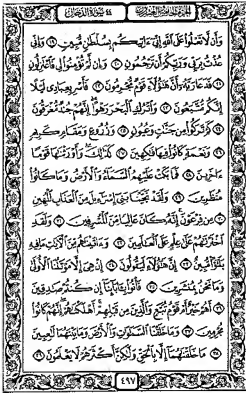 الجزء الخامس والعشرون ٤٤ سورة الدخان
وَأَن لَّا تَعْلُوا۟ عَلَى ٱللَّهِ إِنِّىٓ ءَاتِيكُم بِسُلْطَـٰنٍ مُّبِينٍ ١٩ وَإِنِّى
عُذْتُ بِرَبِّى وَرَبِّكُمْ أَن تَرْجُمُونِ ٢٠ وَإِن لَّمْ تُؤْمِنُوا۟ لِى فَٱعْتَزِلُونِ ٢١
فَدَعَا رَبَّهُۥٓ أَنَّ هَـٰٓؤُلَآءِ قَوْمٌ مُّجْرِمُونَ ٢٢ فَأَسْرِ بِعِبَادِى لَيْلًا
إِنَّكُم مُّتَّبَعُونَ ٢٣ وَٱتْرُكِ ٱلْبَحْرَ رَهْوًا إِنَّهُمْ جُندٌ مُّغْرَقُونَ ٢٤
كَمْ تَرَكُوا۟ مِن جَنَّـٰتٍ وَعُيُونٍ ٢٥ وَزُرُوعٍ وَمَقَامٍ كَرِيمٍ ٢٦
وَنَعْمَةٍ كَانُوا۟ فِيهَا فَـٰكِهِينَ ٢٧ كَذَٰلِكَ وَأَوْرَثْنَـٰهَا قَوْمًا
ءَاخَرِينَ ٢٨ فَمَا بَكَتْ عَلَيْهِمُ ٱلسَّمَآءُ وَٱلْأَرْضُ وَمَا كَانُوا۟
مُنظَرِينَ ٢٩ وَلَقَدْ نَجَّيْنَا بَنِىٓ إِسْرَٰٓءِيلَ مِنَ ٱلْعَذَابِ ٱلْمُهِينِ
٣٠ مِن فِرْعَوْنَ إِنَّهُۥ كَانَ عَالِيًا مِّنَ ٱلْمُسْرِفِينَ ٣١ وَلَقَدِ
ٱخْتَرْنَـٰهُمْ عَلَىٰ عِلْمٍ عَلَى ٱلْعَـٰلَمِينَ ٣٢ وَءَاتَيْنَـٰهُم مِّنَ ٱلْـَٔايَـٰتِ مَا فِيهِ
بَلَـٰٓؤٌا۟ مُّبِينٌ ٣٣ إِنَّ هَـٰٓؤُلَآءِ لَيَقُولُونَ ٣٤ إِنْ هِىَ إِلَّا مَوْتَتُنَا ٱلْأُولَىٰ
وَمَا نَحْنُ بِمُنشَرِينَ ٣٥ فَأْتُوا۟ بِـَٔابَآئِنَآ إِن كُنتُمْ صَـٰدِقِينَ
٣٦ أَهُمْ خَيْرٌ أَمْ قَوْمُ تُبَّعٍ وَٱلَّذِينَ مِن قَبْلِهِمْ أَهْلَكْنَـٰهُمْ إِنَّهُمْ كَانُوا۟
مُجْرِمِينَ ٣٧ وَمَا خَلَقْنَا ٱلسَّمَـٰوَٰتِ وَٱلْأَرْضَ وَمَا بَيْنَهُمَا لَـٰعِبِينَ
٣٨ مَا خَلَقْنَـٰهُمَآ إِلَّا بِٱلْحَقِّ وَلَـٰكِنَّ أَكْثَرَهُمْ لَا يَعْلَمُونَ ٣٩
٤٩٧